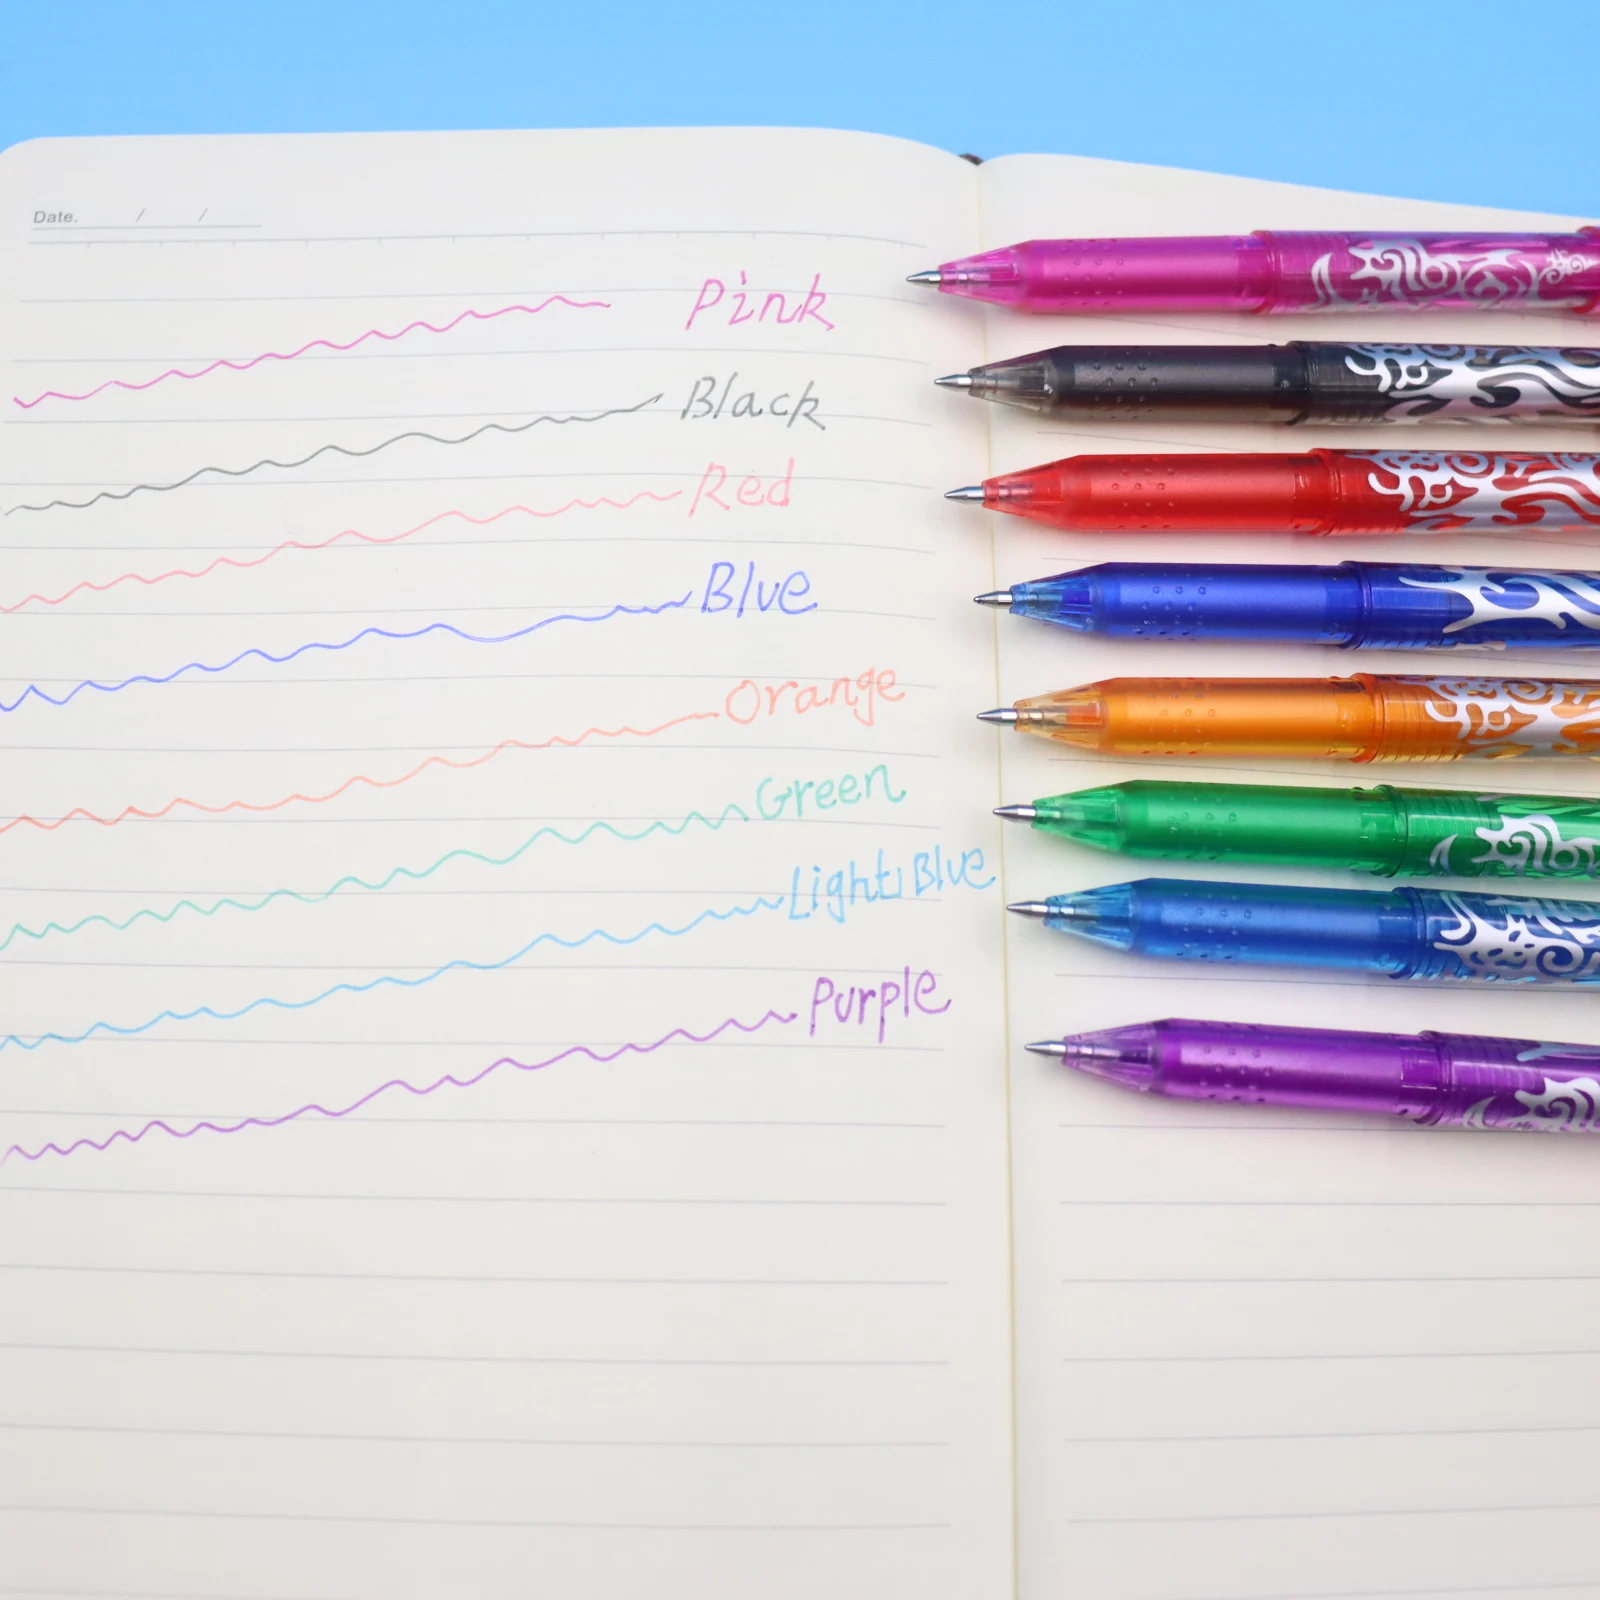 Date. / /
Pink
Black
Red
Blue
Orange
Green
Light Blue
Purple